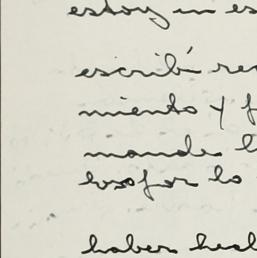 estoy en es
escribí re
miento y f
mande l
por lo
haber hech